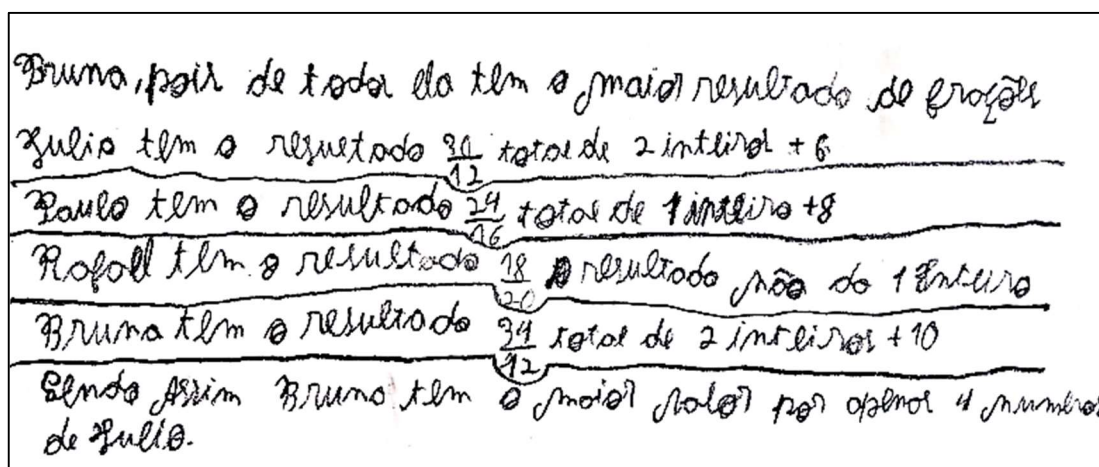 Bruna, pois de todos ela tem o maior resultado de frações
Julio tem o resultado 30/12 total de 2 inteiros + 6
Paulo tem o resultado 24/16 total de 1 inteiro +8
Rafael tem o resultado 18/20 o resultado não da 1 Inteiro
Bruna tem o resultado 34/12 total de 2 inteiros + 10
Sendo Assim Bruna tem o maior valor por apenas 4 numeros
de Julio.